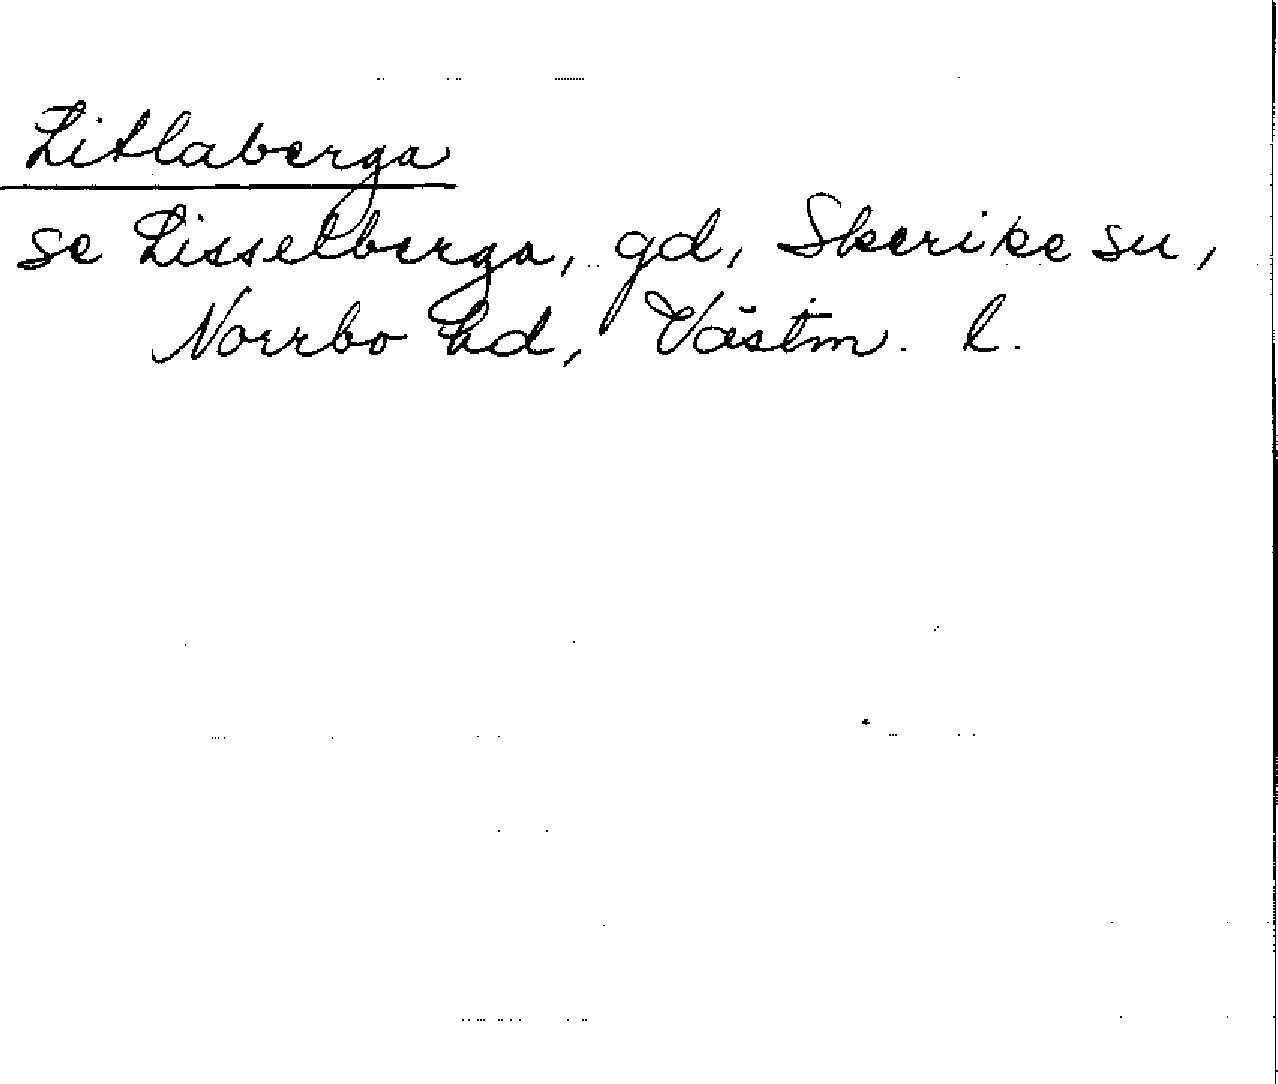 Litlaberga
se Lisselberga, gd, Skerike sn,
Norrbo hd, Västm. l.